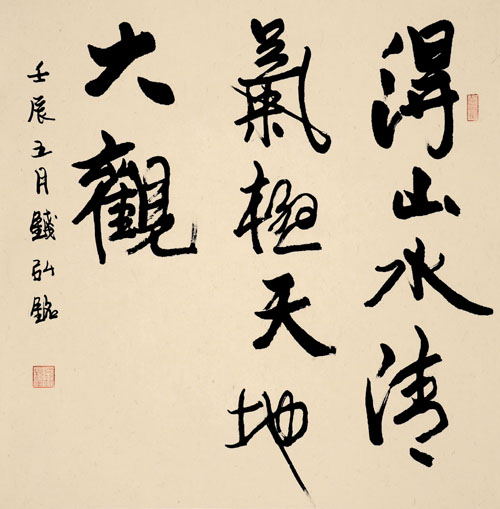 得山水清
氣極天地
大觀
壬辰五月錢弘銘